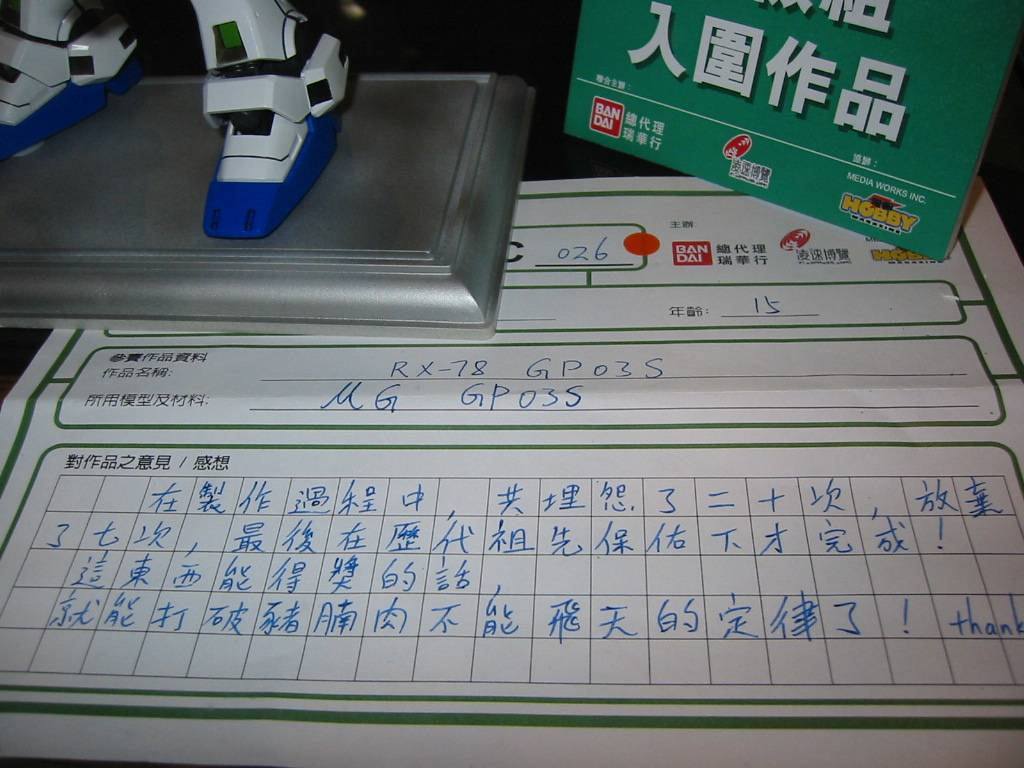 入圍作品
聯合主辦:
BAN DAI 總代理 瑞華行
凌速博覽
協辦:
MEDIA WORKS INC.
HOBBY
C 026
主辦
BAN DAI 總代理 瑞華行
凌速博覽
年齡: 15
參賽作品資料
作品名稱: RX-78 GP03S
所用模型及材料: MG GP03S
對作品之意見 / 感想
在製作過程中, 共埋怨了二十次, 放棄
了七次, 最後在歷代祖先保佑下才完成!
這東西能得獎的話,
就能打破豬腩肉不能飛天的定律了! thank